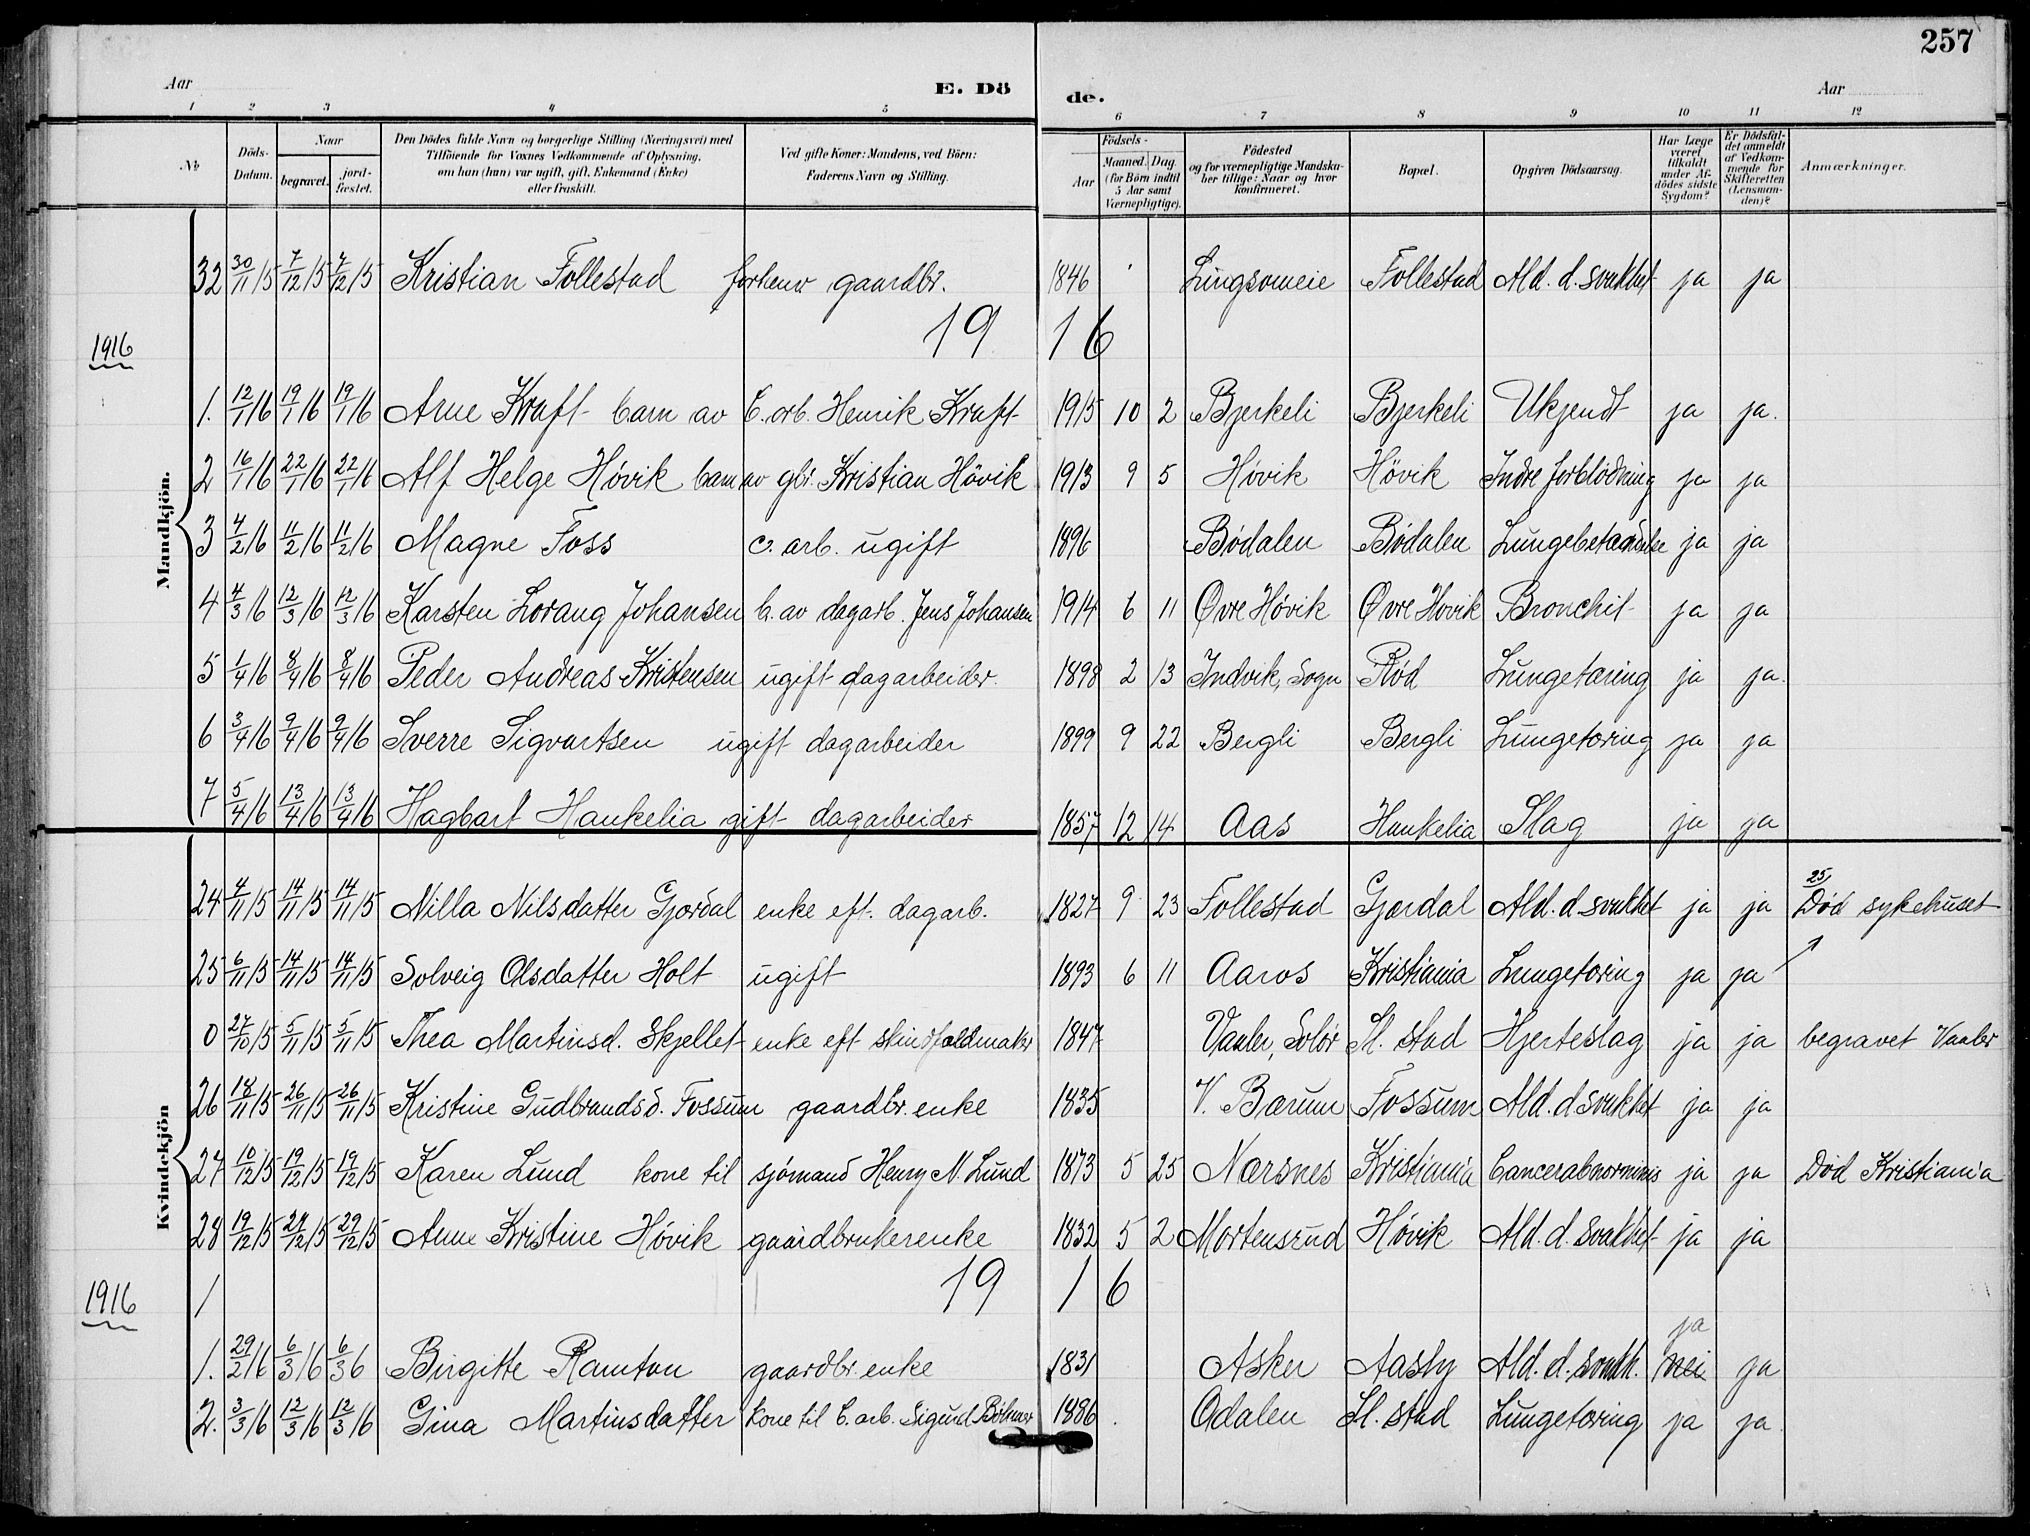 257
Aar
E. Dö de.
Aar
1 2 3 4 5 6 7 8 9 10 11 12
№ Döds-Datum. Naar begravet. jord-fæstet. Den Dödes fulde Navn og borgerlige Stilling (Næringsvei) med Tilföiende for Voxnes Vedkommende af Oplysning, om han (hun) var ugift, gift, Enkemand (Enke) eller fraskilt. Ved gifte Koner: Mandens, ved Börn: Faderens Navn og Stilling. Födsels- Aar Maaned. Dag. (for Börn indtil 5 Aar samt Værnepligtige). Födested og for værnepligtige Mandskaber tillige: Naar og hvor konfirmeret. Bopæl. Opgiven Dödsaarsag. Har Læge været tilkaldt under Afdödes sidste Sygdom? Er Dödsfaldet anmeldt af Vedkommende for Skifteretten (Lensmanden)? Anmærkninger.
Mandkjön.
32 30/11 15 7/12 15 7/12 15 Kristian Follestad forhenv gaardbr. 1846 Lingsomeie Follestad Ald. d. svakhet ja ja
1916
1916
1. 12/1 16 19/1 16 19/1 16 Arne Kraft barn av C. arb. Henrik Kraft 1915 10 2 Bjerkeli Bjerkeli Ukjendt ja ja.
2 16/1 16 22/1 16 22/1 16 Alf Helge Hövik barn av gbr. Kristian Hövik 1913 9 5 Hövik Hövik Indre forblödning ja ja
3 4/2 16 11/2 16 11/2 16 Magne Foss c. arb. ugift 1896 Bödalen Bödalen Lungebetændelse ja ja
4 4/3 16 12/3 16 12/3 16 Karsten Lorang Johansen b. av dagarb. Jens Johansen 1914 6 11 Øvre Hövik Øvre Hövik Bronchit ja ja
5 1/4 16 8/4 16 8/4 16 Peder Andreas Kristensen ugift dagarbeider. 1898 2 13 Indvik, Sogn Röd Lungetæring ja ja.
6 3/4 16 9/4 16 9/4 16 Sverre Sigvartsen ugift dagarbeider 1899 9 22 Bergli Bergli Lungetæring ja ja
7 5/4 16 13/4 16 13/4 16 Hagbart Haukelia gift dagarbeider 1857 12 14 Aas Haukelia Slag ja ja
Kvindekjön
24 4/11 15 14/11 15 14/11 15 Nilla Nilsdatter Gjerdal enke eft. dagarb. 1827 9 23 Follestad Gjerdal Ald. d svakhet ja ja 25/ Död sykehuset
25 6/11 15 14/11 15 14/11 15 Solveig Olsdatter Holt ugift 1893 6 11 Aaros Kristiania Lungetæring ja ja
0 27/10 15 5/11 15 5/11 15 Thea Martinsd. Skjellet enke eft skindfeldmaker 1847 Vaaler, Solör Sl. stad Hjerteslag ja ja begravet Vaaler
26 18/11 15 26/11 15 26/11 15 Kristine Gudbrandsd. Fossum gaardbr. enke 1835 V. Bærum Fossum Ald. d svakhet ja ja
27 10/12 15 19/12 15 19/12 15 Karen Lund kone til sjömand Henry N. Lund 1873 5 25 Nærsnes Kristiania ja ja Död Kristiania
28 19/12 15 29/12 15 29/12 15 Anne Kristine Hövik gaardbrukerenke 1832 5 2 Mortensrud Hövik Ald. d. svakhet ja ja
1916
1 1916
ja
1. 29/2 16 6/3 16 6/3 6 Birgitte Ramton gaardbr. enke 1831 Asker Aasly Ald. d. svakh. nei ja
2. 3/3 16 12/3 16 12/3 16 Gina Martinsdatter kone til C. arb. Sigurd 1886 Odalen Sl. stad Lungetæring ja ja.